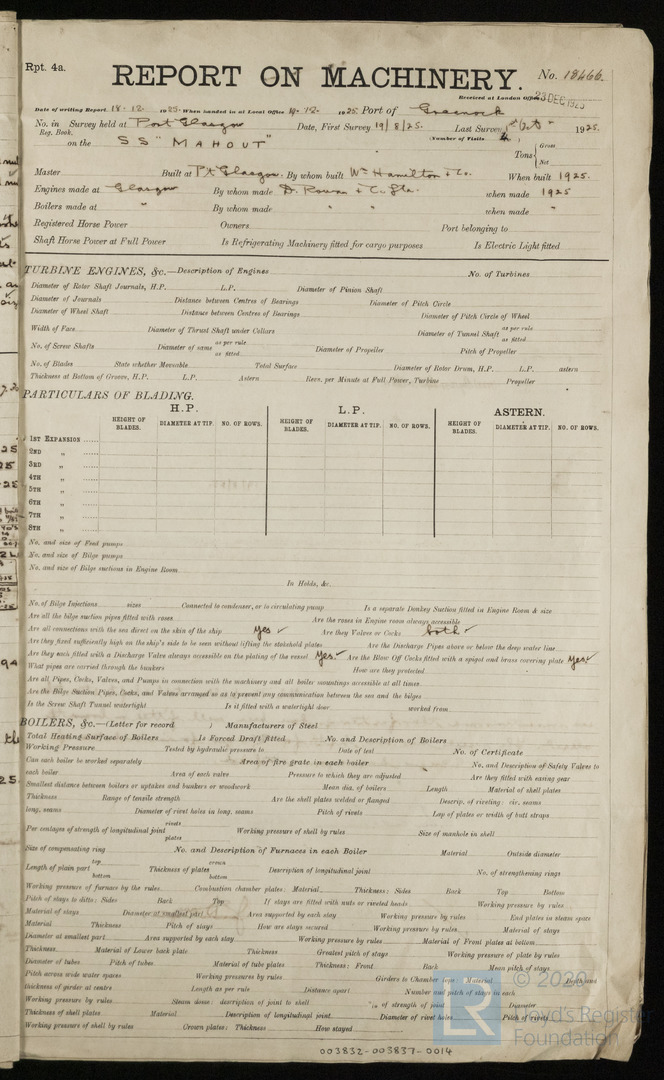 Rpt. 4a.
REPORT ON MACHINERY.
No. 18466.
Received at London Office 23 DEC 1925
Date of writing Report. 18-12- 1925. When handed in at Local Office 19-12 1925 Port of Greenock
No. in Survey held at Port Glasgow Date, First Survey 19/8/25. Last Survey 1st Oct 1925.
Reg. Book. (Number of Visits 4)
on the SS "MAHOUT" Tons Gross
Net
Master Built at Pt Glasgow. By whom built Wm Hamilton & Co. When built 1925.
Engines made at Glasgow By whom made D. Rowan & Co. Ltd. when made 1925
Boilers made at " By whom made " " when made "
Registered Horse Power Owners Port belonging to
Shaft Horse Power at Full Power Is Refrigerating Machinery fitted for cargo purposes Is Electric Light fitted
TURBINE ENGINES, &c.—Description of Engines No. of Turbines
Diameter of Rotor Shaft Journals, H.P. L.P. Diameter of Pinion Shaft
Diameter of Journals Distance between Centres of Bearings Diameter of Pitch Circle
Diameter of Wheel Shaft Distance between Centres of Bearings Diameter of Pitch Circle of Wheel
Width of Face Diameter of Thrust Shaft under Collars Diameter of Tunnel Shaft as per rule
as fitted
No. of Screw Shafts Diameter of same as per rule
as fitted Diameter of Propeller Pitch of Propeller
No. of Blades State whether Moveable Total Surface Diameter of Rotor Drum, H.P. L.P. astern
Thickness at Bottom of Groove, H.P. L.P. Astern Revs. per Minute at Full Power, Turbine Propeller
PARTICULARS OF BLADING.
H.P. L.P. ASTERN.
HEIGHT OF BLADES. DIAMETER AT TIP. NO. OF ROWS. HEIGHT OF BLADES. DIAMETER AT TIP. NO. OF ROWS. HEIGHT OF BLADES. DIAMETER AT TIP. NO. OF ROWS.
1ST EXPANSION
2ND "
3RD "
4TH "
5TH "
6TH "
7TH "
8TH "
No. and size of Feed pumps
No. and size of Bilge pumps
No. and size of Bilge suctions in Engine Room
In Holds, &c.
No. of Bilge Injections sizes Connected to condenser, or to circulating pump Is a separate Donkey Suction fitted in Engine Room & size
Are all the bilge suction pipes fitted with roses Are the roses in Engine room always accessible
Are all connections with the sea direct on the skin of the ship Yes ✓ Are they Valves or Cocks both ✓
Are they fixed sufficiently high on the ship's side to be seen without lifting the stokehold plates Are the Discharge Pipes above or below the deep water line
Are they each fitted with a Discharge Valve always accessible on the plating of the vessel Yes ✓ Are the Blow Off Cocks fitted with a spigot and brass covering plate Yes ✓
What pipes are carried through the bunkers How are they protected
Are all Pipes, Cocks, Valves, and Pumps in connection with the machinery and all boiler mountings accessible at all times
Are the Bilge Suction Pipes, Cocks, and Valves arranged so as to prevent any communication between the sea and the bilges
Is the Screw Shaft Tunnel watertight Is it fitted with a watertight door worked from
BOILERS, &c.—(Letter for record ) Manufacturers of Steel
Total Heating Surface of Boilers Is Forced Draft fitted No. and Description of Boilers
Working Pressure Tested by hydraulic pressure to Date of test No. of Certificate
Can each boiler be worked separately Area of fire grate in each boiler No. and Description of Safety Valves to
each boiler Area of each valve Pressure to which they are adjusted Are they fitted with easing gear
Smallest distance between boilers or uptakes and bunkers or woodwork Mean dia. of boilers Length Material of shell plates
Thickness Range of tensile strength Are the shell plates welded or flanged Descrip. of riveting: cir. seams
long. seams Diameter of rivet holes in long. seams Pitch of rivets Lap of plates or width of butt straps
Per centages of strength of longitudinal joint rivets
plates Working pressure of shell by rules Size of manhole in shell
Size of compensating ring No. and Description of Furnaces in each Boiler Material Outside diameter
Length of plain part top
bottom Thickness of plates crown
bottom Description of longitudinal joint No. of strengthening rings
Working pressure of furnace by the rules Combustion chamber plates: Material Thickness: Sides Back Top Bottom
Pitch of stays to ditto: Sides Back Top If stays are fitted with nuts or riveted heads Working pressure by rules
Material of stays Diameter at smallest part Area supported by each stay Working pressure by rules End plates in steam space
Material Thickness Pitch of stays How are stays secured Working pressure by rules Material of stays
Diameter at smallest part Area supported by each stay Working pressure by rules Material of Front plates at bottom
Thickness Material of Lower back plate Thickness Greatest pitch of stays Working pressure of plate by rules
Diameter of tubes Pitch of tubes Material of tube plates Thickness: Front Back Mean pitch of stays
Pitch across wide water spaces Working pressures by rules Girders to Chamber tops: Material Depth and
thickness of girder at centre Length as per rule Distance apart Number and pitch of stays in each
Working pressure by rules Steam dome: description of joint to shell % of strength of joint Diameter
Thickness of shell plates Material Description of longitudinal joint Diameter of rivet holes Pitch of rivets
Working pressure of shell by rules Crown plates: Thickness How stayed
003832-003837-0014
© 2020
Lloyd's Register
Foundation
LR